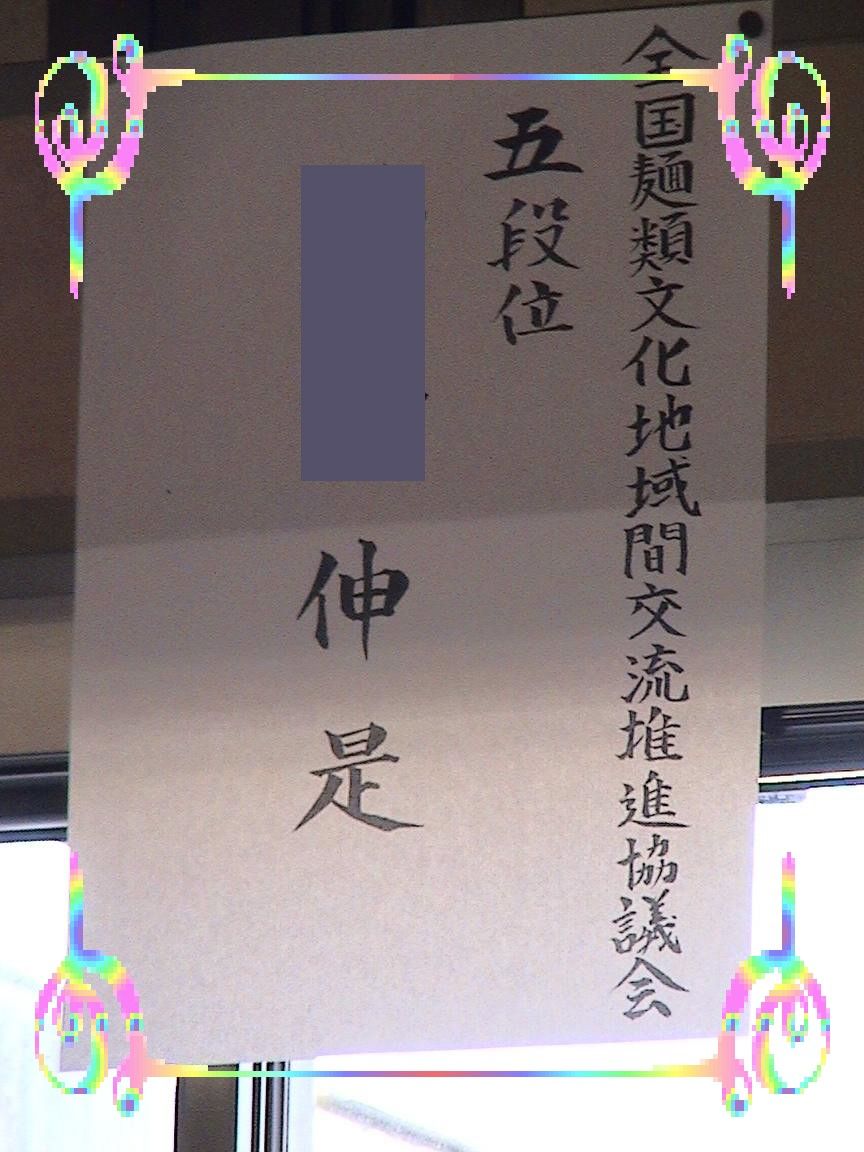 全国麺類文化地域間交流推進協議会
五段位
伸是